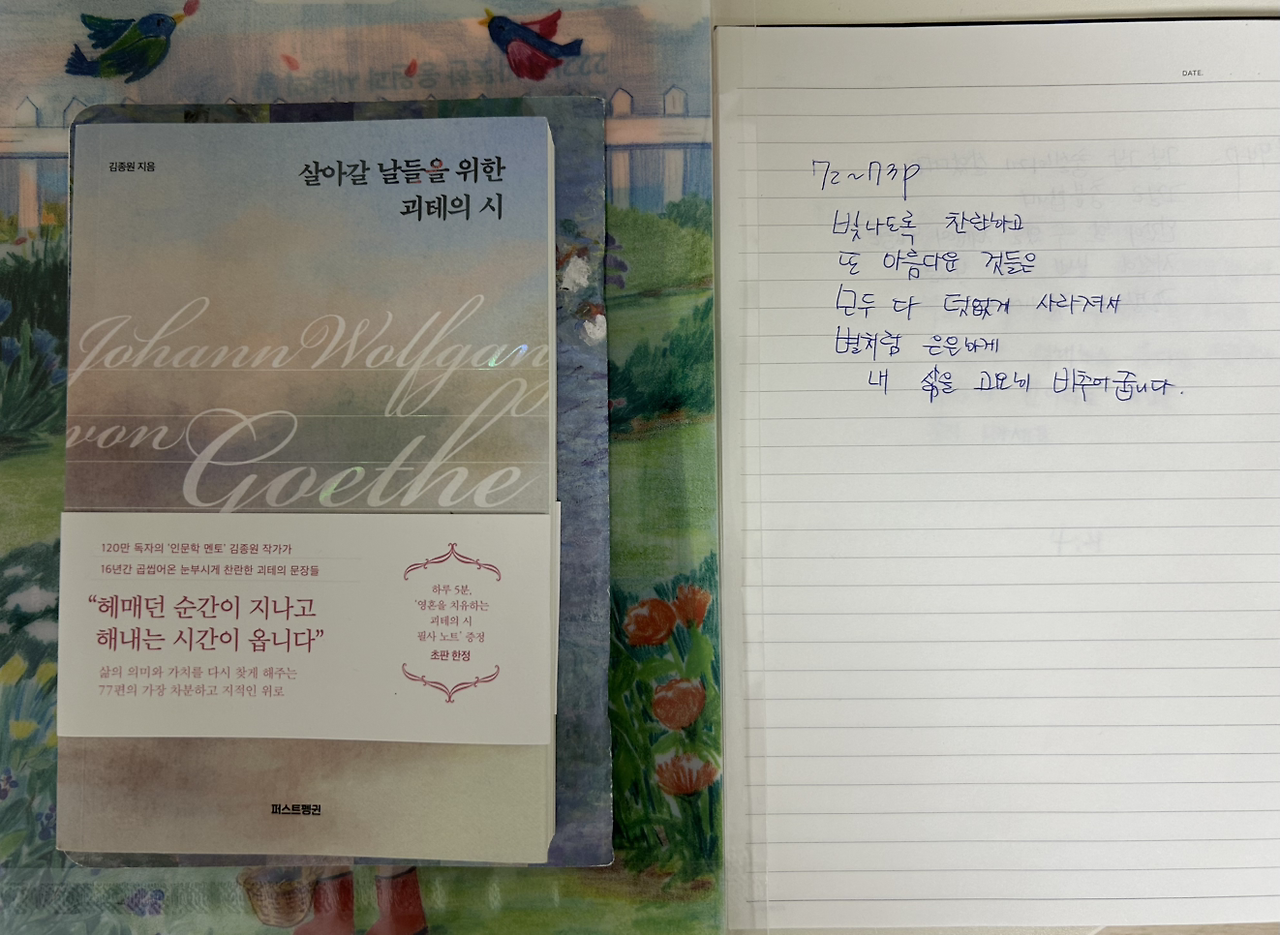 김종원 지음
살아갈 날들을 위한
괴테의 시
Johann Wolfgang
von Goethe
120만 독자의 '인문학 멘토' 김종원 작가가
16년간 곱씹어온 눈부시게 찬란한 괴테의 문장들
“헤매던 순간이 지나고
해내는 시간이 옵니다”
삶의 의미와 가치를 다시 찾게 해주는
77편의 가장 차분하고 지적인 위로
하루 5분,
'영혼을 치유하는
괴테의 시
필사 노트' 증정
초판 한정
퍼스트펭귄
DATE.
72~73p
빛나도록 찬란하고
또 아름다운 것들은
모두 다 덧없게 사라져서
별처럼 은은하게
내 삶을 고요히 비추어 줍니다.